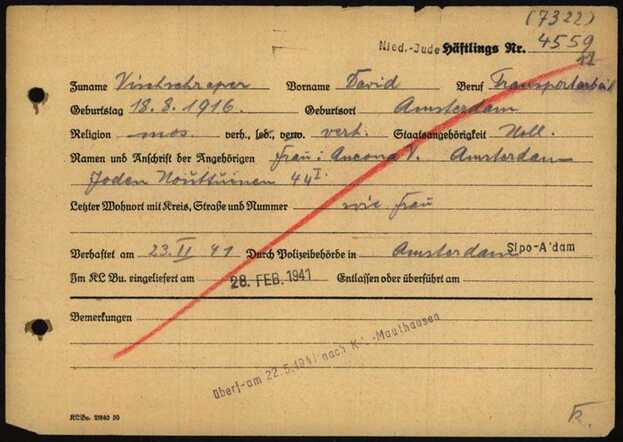 (7322)
Nied.-Jude Häftlings Nr. 4559
Zuname Vischschraper Vorname David Beruf Transportarbeit
Geburtstag 18.8.1916. Geburtsort Amsterdam
Religion mos. verh., led., verw. verh. Staatsangehörigkeit Holl.
Namen und Anschrift der Angehörigen Frau: Ancona V. Amsterdam
Joden Houttuinen 44 I.
Letzter Wohnort mit Kreis, Straße und Nummer wie Frau
Verhaftet am 23. II 41 Durch Polizeibehörde in Amsterdam Sipo-A'dam
Im KL Bu. eingeliefert am 28. FEB. 1941 Entlassen oder überführt am
Bemerkungen
überf. am 22.5.1941 nach K.L.-Mauthausen